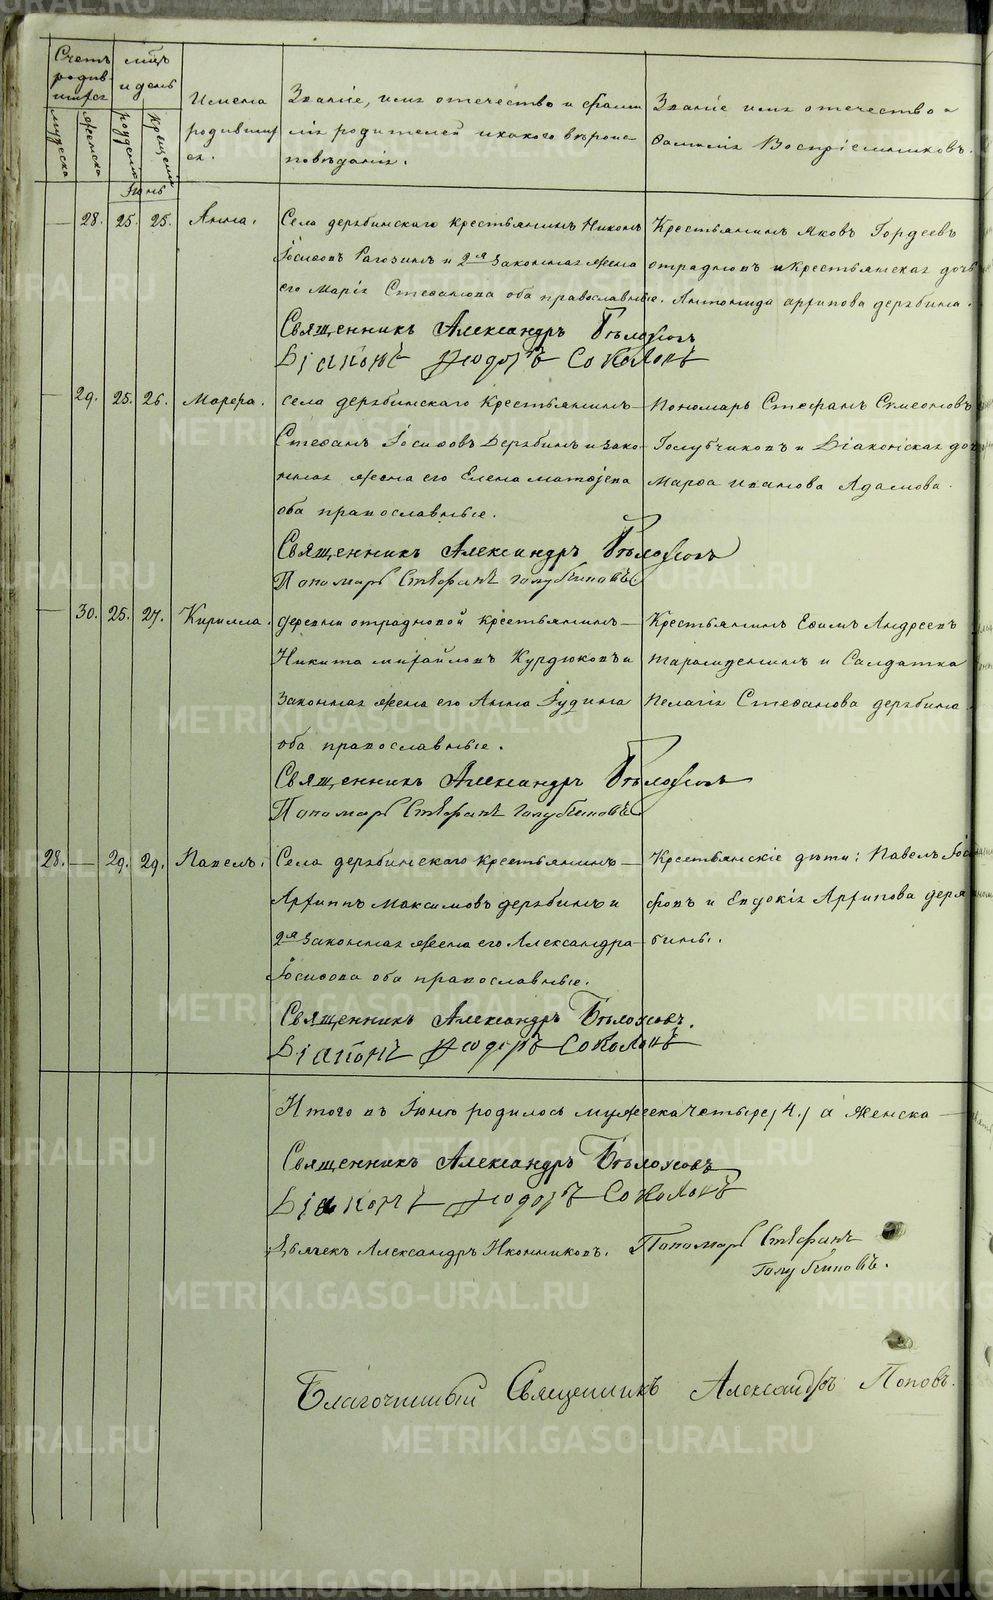 METRIKI.GASO-URAL.RU
Счетъ родив-шихся
мужеска
женска
мѣсяцъ и день
рожденія
крещенія
Имена родившихся.
Званіе, имя отечество и фами
лія родителей и какого вѣроис
повѣданія.
Званіе имя отечество и
Фамилія Воспріемниковъ.
Іюнь
— 28. 25. 25. Анна.
Села дерябинскаго крестьянинъ Никонъ
Іосифовъ Рагозинъ и 2я законная жена
его Марія Стефанова оба православные.
Крестьянинъ Яковъ Гордеевъ
отрадновъ и крестьянская дочь
Антонида архипова дерябина.
Священникъ Александръ Бѣлоусовъ
Діаконъ Ѳеодоръ Соколовъ
— 29. 25. 26. Марѳа.
села дерябинскаго крестьянинъ —
Стефанъ Іосифовъ Дерябинъ и зако-
нная жена его Елена матѳѣева
оба православные.
Пономарь Стефанъ Симеоновъ
Голубчиковъ и Діаконская дочь
Марфа иванова Адамова.
Священникъ Александръ Бѣлоусовъ
Пономарь Стефанъ Голубчиковъ
— 30. 25. 27. Кирилла.
деревни отрадновой крестьянинъ —
Никита михайловъ Курдюковъ и
Законная жена его Анна Іудина
оба православные.
Крестьянинъ Ефимъ Андреевъ
и Салдатка
Пелагія Стефанова дерябина.
Священникъ Александръ Бѣлоусовъ
Пономарь Стефанъ Голубчиковъ
28. — 29. 29. Павелъ.
Села дерябинскаго крестьянинъ —
Архиппъ Максимовъ дерябинъ и
2я законная жена его Александра
Іосифова оба православные.
Крестьянскіе дѣти: Павелъ Іоси
фовъ и Евдокія Архипова деря
бины.
Священникъ Александръ Бѣлоусовъ.
Діаконъ Ѳеодоръ Соколовъ
Итого въ Іюнѣ родилось мужеска четыре /4./ а женска —
Священникъ Александръ Бѣлоусовъ
Діаконъ Ѳеодоръ Соколовъ
Дьячекъ Александръ Иконниковъ. Пономарь Стефанъ
Голубчиковъ.
Благочинный Священникъ Александръ Поповъ.